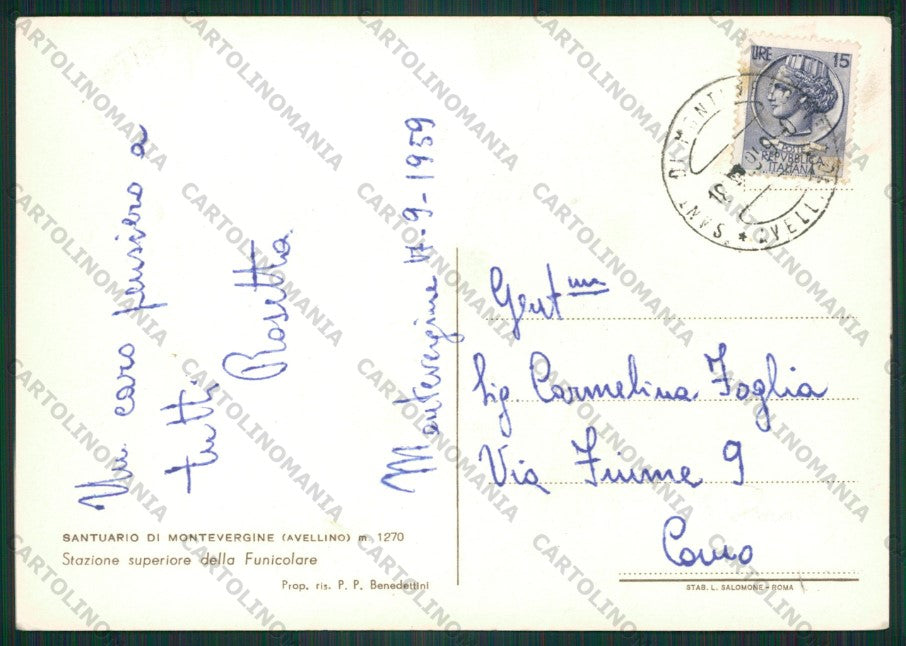 Un caro pensiero a
tutti,
Rosetta
Montevergine -9-1959
LIRE 15
POSTE
REPUBBLICA
ITALIANA
SANT. DI MONT
AVELL.
Gent.ma
Sig Carmelina Foglia
Via Fiume 9
Como
SANTUARIO DI MONTEVERGINE (AVELLINO) m. 1270
Stazione superiore della Funicolare
Prop. ris. P. P. Benedettini
STAB. L. SALOMONE - ROMA
CARTOLINOMANIA